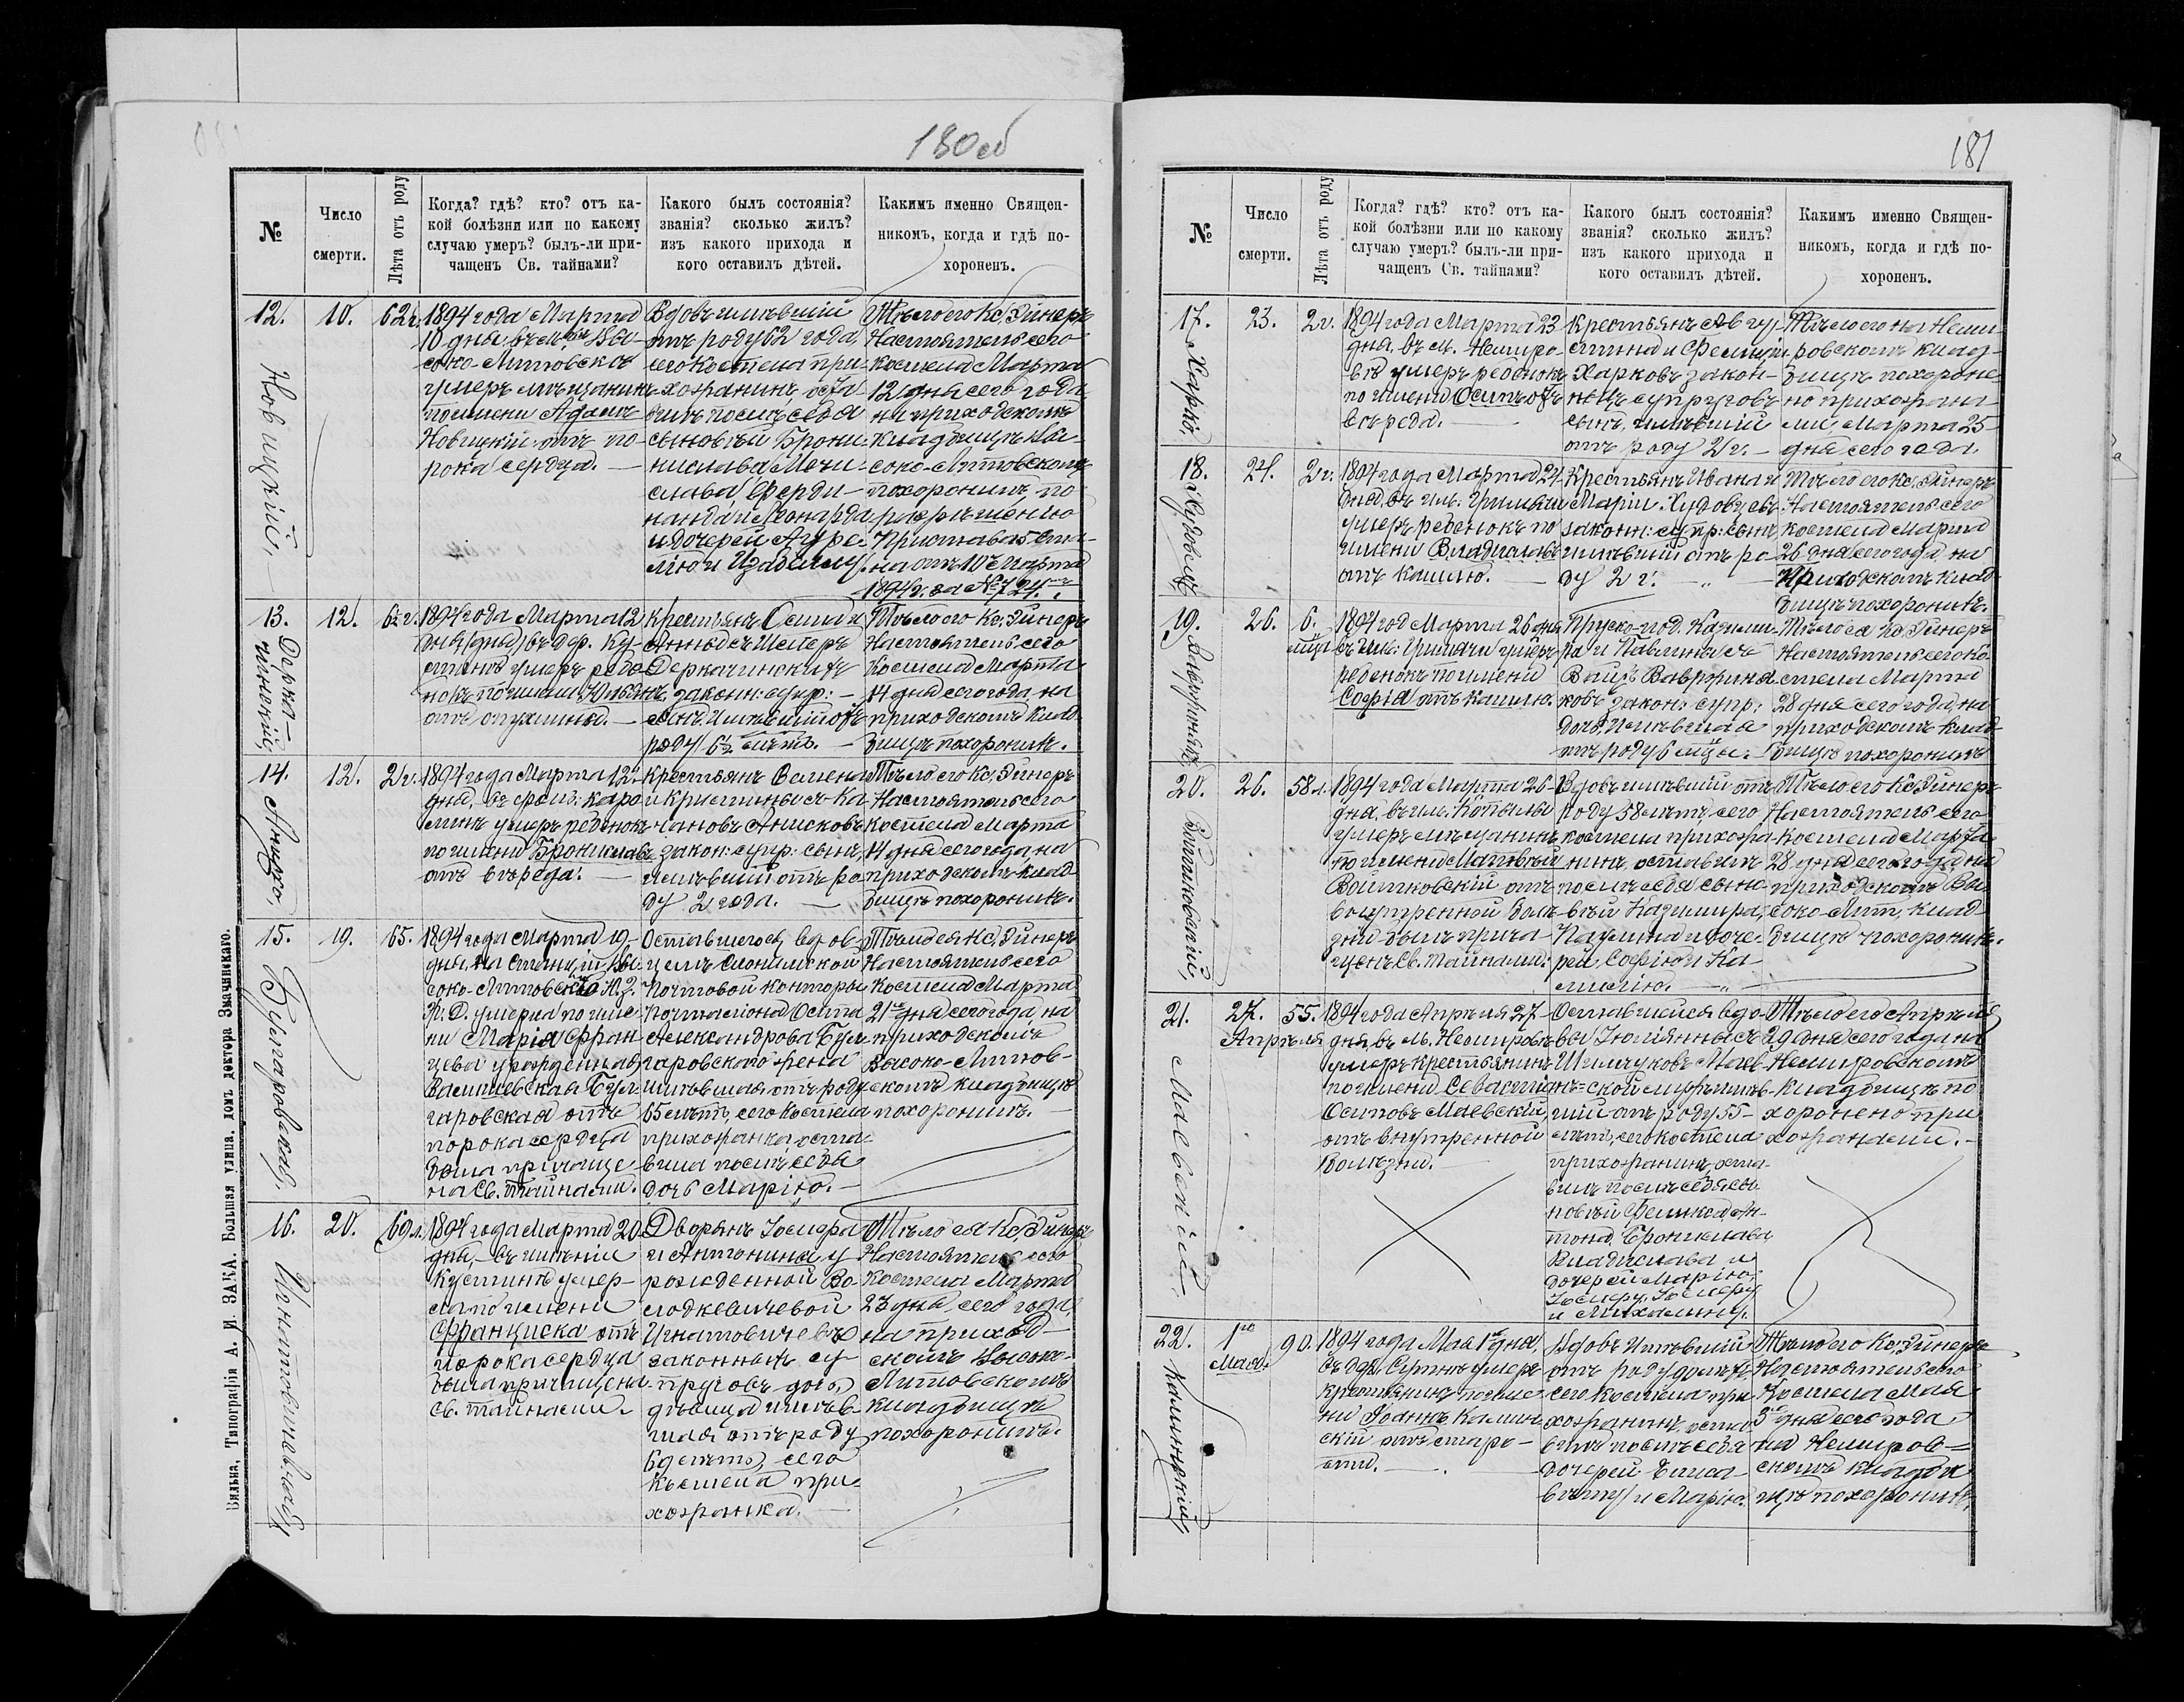 180об
№
Число
смерти.
Лѣта отъ роду
Когда? гдѣ? кто? отъ ка-
кой болѣзни или по какому
случаю умеръ? былъ-ли при-
чащенъ Св. тайнами?
Какого былъ состоянія?
званія? сколько жилъ?
изъ какого прихода и
кого оставилъ дѣтей.
Какимъ именно Священ-
никомъ, когда и гдѣ по-
хороненъ.
12.
Новицкій,
10.
62 г.
1894 года Марта
10 дня, въ м. Высо-
соко-Литовскѣ
умеръ мѣщанинъ
по имени Адамъ
Новицкій отъ по-
рока сердца. —
Вдовъ жившій
отъ роду 62 года,
сего костела при-
хожанинъ, оста-
вилъ послѣ себя
сыновъей Брони-
нислава, Мечи-
слава, Ферди-
нанда и Леонарда
и дочерей Ауре-
лію и Изабеллу.
Тѣло его Кс. Эйнеръ
Настоятель сего
костела Марта
12 дня сего года,
на приходскомъ
кладбищѣ Вы-
соко-Литовскомъ
похоронилъ, по
разрѣшенію
Пристава 5 Ста-
на отъ 10 Марта
1894 г. за № 724.
13.
Дерка-
чинскій,
12.
6½ г.
1894 года Марта 12
дня (дня) въ дер. Ку-
стинѣ умеръ ребе-
нокъ по имени Юльянъ
отъ опухлины. —
Крестьянъ Осипа и
Анны съ Шеперъ
Деркачинскихъ
законн: супр: —
сынъ, жившій отъ
роду 6½ лѣтъ. —
Тѣло его Кс. Эйнеръ
Настоятель сего
Костела Марта
14 дня сего года, на
приходскомъ клад-
бищѣ похоронилъ.
14.
Анизко,
12.
2 г.
1894 года Марта 12
дня, въ фольв: Каро-
линѣ умеръ ребенокъ
по имени Брониславъ
отъ вереда. —
Крестьянъ Семена
и Кристины съ Ка-
чановъ Анисковъ
закон: супр: сынъ,
жившій отъ ро-
ду 2 года. —
Тѣло его Кс. Эйнеръ
Настоятель сего
костела Марта
14 дня сего года, на
приходскомъ клад-
бищѣ похоронилъ.
15.
Булгаровская,
19.
65.
1894 года Марта 19
дня, на станціи Вы-
соко-Литовскъ Ю. З.
Ж. Д. умерла по име-
ни Марія Фран-
цева урожденная
Василевская Бул-
гаровская отъ
порока сердца
была причаще-
на Св. тайнами.
Оставшегося вдов-
цемъ Слонимской
Почтовой конторы
почталіона Осипа
Александрова Бул-
гаровского жена
жившая отъ роду
65 лѣтъ, сего Костела
прихожанка, оста-
вила послѣ себя
дочь Марію. —
Тѣло ея Кс. Эйнеръ
Настоятель сего
Костела Марта
21го дня сего года на
приходскомъ
Высоко-Литов-
скомъ кладбищѣ
похоронилъ. —
16.
Игнатовичевна,
20.
69 л.
1894 года Марта 20
дня, въ имѣніи
Кустинѣ умер-
ла по имени
Франциска отъ
порока сердца
была причащена
Св. тайнами. —
Дворянъ Іосифа
и Антонины, у-
рожденной Во-
лодкевичевой
Игнатовичевъ
законныхъ су-
пруговъ дочь,
дѣвица жив-
шая отъ роду
69 лѣтъ, сего
Костела при-
хожанка. —
Тѣло ея Кс. Эйнеръ
Настоятель сего
Костела Марта
23 дня, сего года,
на приход-
скомъ Высоко-
Литовскомъ
кладбищѣ
похоронилъ.
Вильна, Типографія А. И. ЗАКА. Большая улица, домъ доктора Змачинскаго.
181
№
Число
смерти.
Лѣта отъ роду
Когда? гдѣ? кто? отъ ка-
кой болѣзни или по какому
случаю умеръ? былъ-ли при-
чащенъ Св. тайнами?
Какого былъ состоянія?
званія? сколько жилъ?
изъ какого прихода и
кого оставилъ дѣтей.
Какимъ именно Священ-
никомъ, когда и гдѣ по-
хороненъ.
17.
Харко,
23.
2 г.
1894 года Марта 23
дня, въ м. Немиро-
вѣ умеръ ребенокъ
по имени Осипъ отъ
вереда. —
Крестьянъ Авгу-
стина и Фелиціи
Харковъ закон-
ныхъ супруговъ
сынъ, жившій
отъ роду 2 г. —
Тѣло его на Неми-
ровскомъ клад-
бищѣ похороне-
но прихожана-
ми, Марта 25
дня сего года.
18.
24.
2 г.
1894 года Марта 24
дня, въ им. Гримячи
умеръ ребенокъ по
имени Владиславъ
отъ кашлю. —
Крестьянъ Ивана и
Маріи
законн: супр: сынъ,
жившій отъ ро-
ду 2 г. —
Тѣло его Кс. Эйнеръ
Настоятель сего
костела Марта
26 дня сего года, на
Приходскомъ клад-
бищѣ похоронилъ.
19.
26.
6.
мѣс.
1894 год Марта 26 дня
въ им: Гримячи умеръ
ребенокъ по имени
Софія отъ кашлю.
Пруско-под. Казими-
ра и Павлины съ
законн: супр:
дочь, жившая
отъ роду 6 мѣс: —
Тѣло ея Кс. Эйнеръ
Настоятель сего ко-
стела Марта
28 дня сего года, на
приходскомъ клад-
бищѣ похоронилъ
20.
Войтковскій,
26.
58 л.
1894 года Марта 26
дня, въ им: Копылы
умеръ мѣщанинъ
по имени Матвѣй
Войтковскій отъ
внутренной болѣ-
зни былъ прича-
щенъ Св. тайнами:
Вдовъ жившій отъ
роду 58 лѣтъ, сего
костела прихожа-
нинъ, оставилъ
послѣ себя сыно-
вѣй Казимира,
Павлина и доче-
рей, Софію и Ка-
милію. —
Тѣло его Кс. Эйнеръ
Настоятель сего
Костела Марта
28 дня сего года, на
приходскомъ Вы-
соко-Лит. клад-
бищѣ похоронилъ.
21.
Маевскій,
27.
Апрѣля
55.
1894 года Апрѣля 27
дня, въ м. Немировѣ
умеръ крестьянинъ
по имени Севастіанъ
Осиповъ Маевскій,
отъ внутренной
болѣзни. —
Оставшейся вдо-
вы Юліянны съ
Шимчуковъ Маев-
ской мужъ, жив-
шій отъ роду 55
лѣтъ, сего костела
прихожанинъ, оста-
вилъ послѣ себя сы-
новѣй Феликса, Ан-
тона, Бронислава
Владислава и
дочерей Марію,
Іосифу, Іосифу
и Михалину.
Тѣло его Апрѣля
29 дня сего года на
Немировскомъ
кладбищѣ по-
хоронено при-
хожанами. —
22.
Калинскій,
1го
Мая.
90.
1894 года Мая 1го дня,
въ дер. Сутнѣ умеръ
крестьянинъ по име-
ни Іоаннъ Калин-
скій отъ старо-
сти. —
Вдовъ жившій
отъ роду 90 лѣтъ,
сего костела при-
хожанинъ, оста-
вилъ послѣ себя
дочерей Елиса-
вету и Марію.
Тѣло его Кс. Эйнеръ
Настоятель сего
Костела Мая
3го дня сего года,
на Немиров-
скомъ кладби-
щѣ похоронилъ.